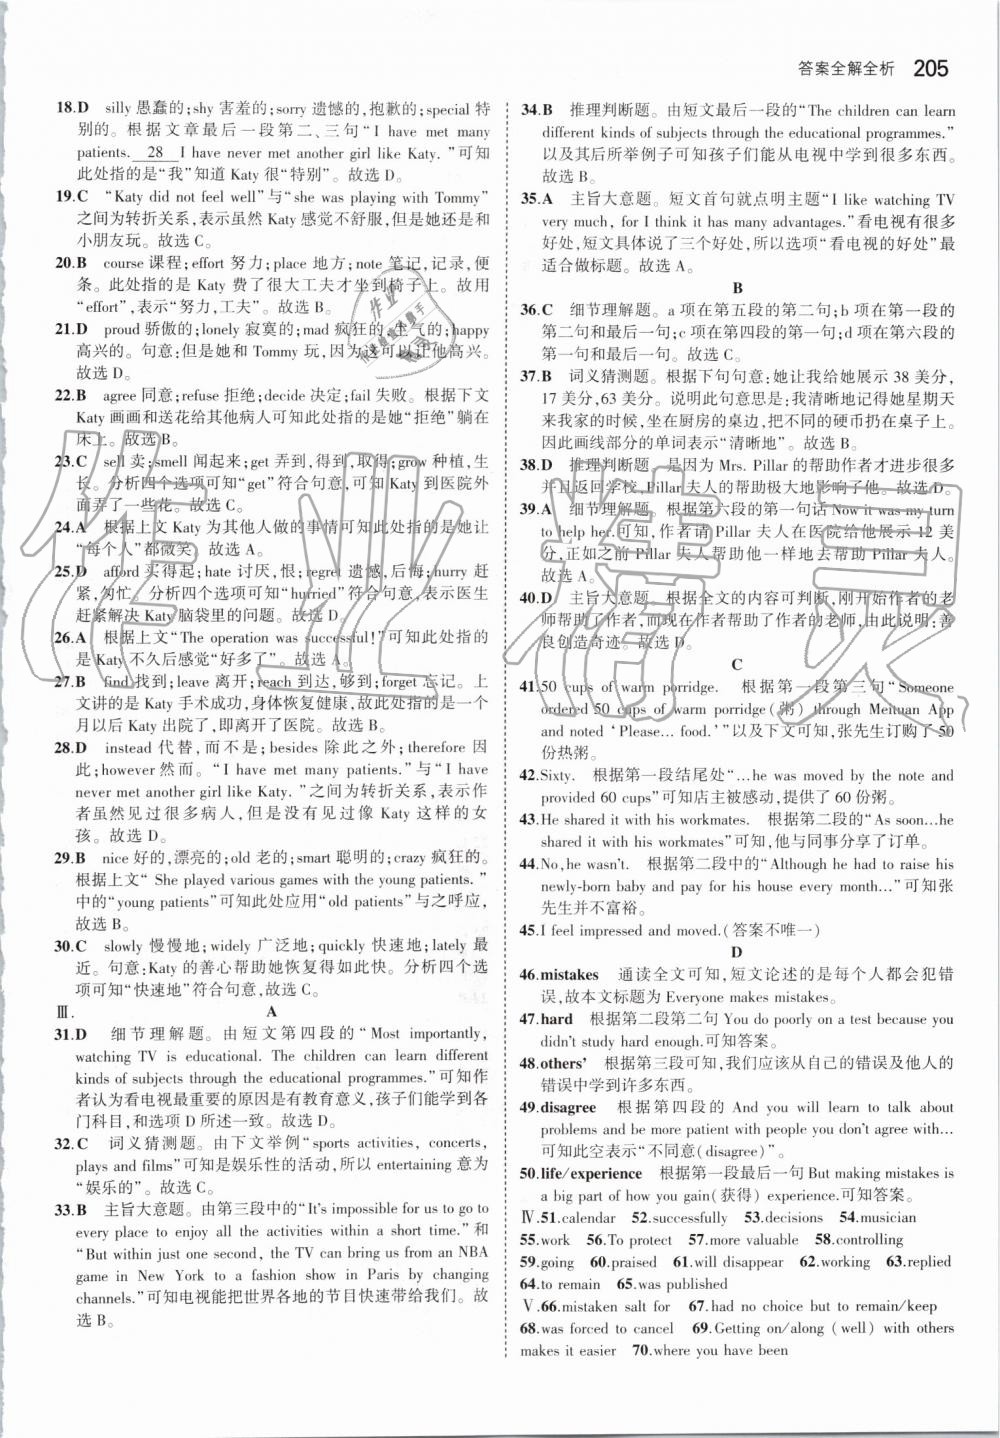 答案全解全析 205
18.D silly 愚蠢的;shy 害羞的;sorry 遗憾的,抱歉的;special 特
别的。根据文章最后一段第二、三句“I have met many
patients. 28 I have never met another girl like Katy.”可知
此处指的是“我”知道 Katy 很“特别”。故选 D。
19.C “Katy did not feel well”与“she was playing with Tommy”
之间为转折关系,表示虽然 Katy 感觉不舒服,但是她还是和
小朋友玩。故选 C。
20.B course 课程;effort 努力;place 地方;note 笔记,记录,便
条。此处指的是 Katy 费了很大工夫才坐到椅子上。故用
“effort”,表示“努力,工夫”。故选 B。
21.D proud 骄傲的;lonely 寂寞的;mad 疯狂的,生气的;happy
高兴的。句意:但是她和 Tommy 玩,因为这可以让他高兴。
故选 D。
22.B agree 同意;refuse 拒绝;decide 决定;fail 失败。根据下文
Katy 画画和送花给其他病人可知此处指的是她“拒绝”躺在
床上。故选 B。
23.C sell 卖;smell 闻起来;get 弄到,得到,取得;grow 种植,生
长。分析四个选项可知“get”符合句意,可知 Katy 到医院外
面弄了一些花。故选 C。
24.A 根据上文 Katy 为其他人做的事情可知此处指的是她让
“每个人”都微笑。故选 A。
25.D afford 买得起;hate 讨厌,恨;regret 遗憾,后悔;hurry 赶
紧,匆忙。分析四个选项可知“hurried”符合句意,表示医生
赶紧解决 Katy 脑袋里的问题。故选 D。
26.A 根据上文“The operation was successful!”可知此处指的
是 Katy 不久后感觉“好多了”。故选 A。
27.B find 找到;leave 离开;reach 到达,够到;forget 忘记。上
文讲的是 Katy 手术成功,身体恢复健康,故此处指的是一个
月以后 Katy 出院了,即离开了医院。故选 B。
28.D instead 代替,而不是;besides 除此之外;therefore 因
此;however 然而。“I have met many patients.”与“I have
never met another girl like Katy.”之间为转折关系,表示作
者虽然见过很多病人,但是没有见过像 Katy 这样的女
孩。故选 D。
29.B nice 好的,漂亮的;old 老的;smart 聪明的;crazy 疯狂的。
根据上文“She played various games with the young patients.”
中的“young patients”可知此处应用“old patients”与之呼应,
故选 B。
30.C slowly 慢慢地;widely 广泛地;quickly 快速地;lately 最
近。句意:Katy 的善心帮助她恢复得如此快。分析四个选项
可知“快速地”符合句意,故选 C。
Ⅲ. A
31.D 细节理解题。由短文第四段的“Most importantly,
watching TV is educational. The children can learn different
kinds of subjects through the educational programmes.”可知作
者认为看电视最重要的原因是有教育意义,孩子们能学到各
门科目,和选项 D 所述一致。故选 D。
32.C 词义猜测题。由下文举例“sports activities, concerts,
plays and films”可知是娱乐性的活动,所以 entertaining 意为
“娱乐的”。故选 C。
33.B 主旨大意题。由第三段中的“It's impossible for us to go to
every place to enjoy all the activities within a short time.”和
“But within just one second, the TV can bring us from an NBA
game in New York to a fashion show in Paris by changing
channels.”可知电视能把世界各地的节目快速带给我们。故
选 B。
34.B 推理判断题。由短文最后一段的“The children can learn
different kinds of subjects through the educational programmes.”
以及其后所举例子可知孩子们能从电视中学到很多东西。
故选 B。
35.A 主旨大意题。短文首句就点明主题“I like watching TV
very much, for I think it has many advantages.”看电视有很多
好处,短文具体说了三个好处,所以选项“看电视的好处”最
适合做标题。故选 A。
B
36.C 细节理解题。a 项在第五段的第二句;b 项在第一段的
第二句和最后一句;c 项在第四段的第一句;d 项在第六段的
第一句和最后一句。故选 C。
37.B 词义猜测题。根据下句句意:她让我给她展示 38 美分,
17 美分,63 美分。说明此句意思是:我清晰地记得她星期天
来我家的时候,坐在厨房的桌边,把不同的硬币扔在桌子上。
因此画线部分的单词表示“清晰地”。故选 B。
38.D 推理判断题。是因为 Mrs. Pillar 的帮助作者才进步很多
并且返回学校,Pillar 夫人的帮助极大地影响了他。故选 D。
39.A 细节理解题。根据第六段的第一句话 Now it was my turn
to help her.可知作者帮助 Pillar 夫人在医院给他展示 12 美
分,正如之前 Pillar 夫人帮助他一样地去帮助 Pillar 夫人。
故选 A。
40.D 主旨大意题。根据全文的内容可判断,刚开始作者的老
师帮助了作者,而现在作者帮助了作者的老师,由此说明:善
良创造奇迹。故选 D。
C
41.50 cups of warm porridge. 根据第一段第三句“Someone
ordered 50 cups of warm porridge(粥) through Meituan App
and noted ‘Please... food.’”以及下文可知,张先生订了 50
份热粥。
42.Sixty. 根据第一段结尾处“...he was moved by the note and
provided 60 cups”可知店主被感动,提供了 60 份粥。
43.He shared it with his workmates. 根据第二段的“As soon...he
shared it with his workmates”可知,他与同事分享了订单。
44.No, he wasn't. 根据第二段中的“Although he had to raise his
newly-born baby and pay for his house every month...”可知张
先生并不富裕。
45.I feel impressed and moved.(答案不唯一)
D
46.mistakes 通读全文可知,短文论述的是每个人都会犯错
误,故本文标题为 Everyone makes mistakes。
47.hard 根据第二段第二句 You do poorly on a test because you
didn't study hard enough.可知答案。
48.others' 根据第三段可知,我们应该从自己的错误及他人的
错误中学到许多东西。
49.disagree 根据第四段的 And you will learn to talk about
problems and be more patient with people you don't agree with...
可知此空表示“不同意(disagree)”。
50.life/experience 根据第一段最后一句 But making mistakes is
a big part of how you gain(获得) experience.可知答案。
Ⅳ.51.calendar 52.successfully 53.decisions 54.musician
55.work 56.To protect 57.more valuable 58.controlling
59.going 60.praised 61.will disappear 62.working 63.replied
64.to remain 65.was published
Ⅴ.66.mistaken salt for 67.had no choice but to remain/keep
68.was forced to cancel 69.Getting on/along (well) with others
makes it easier 70.where you have been